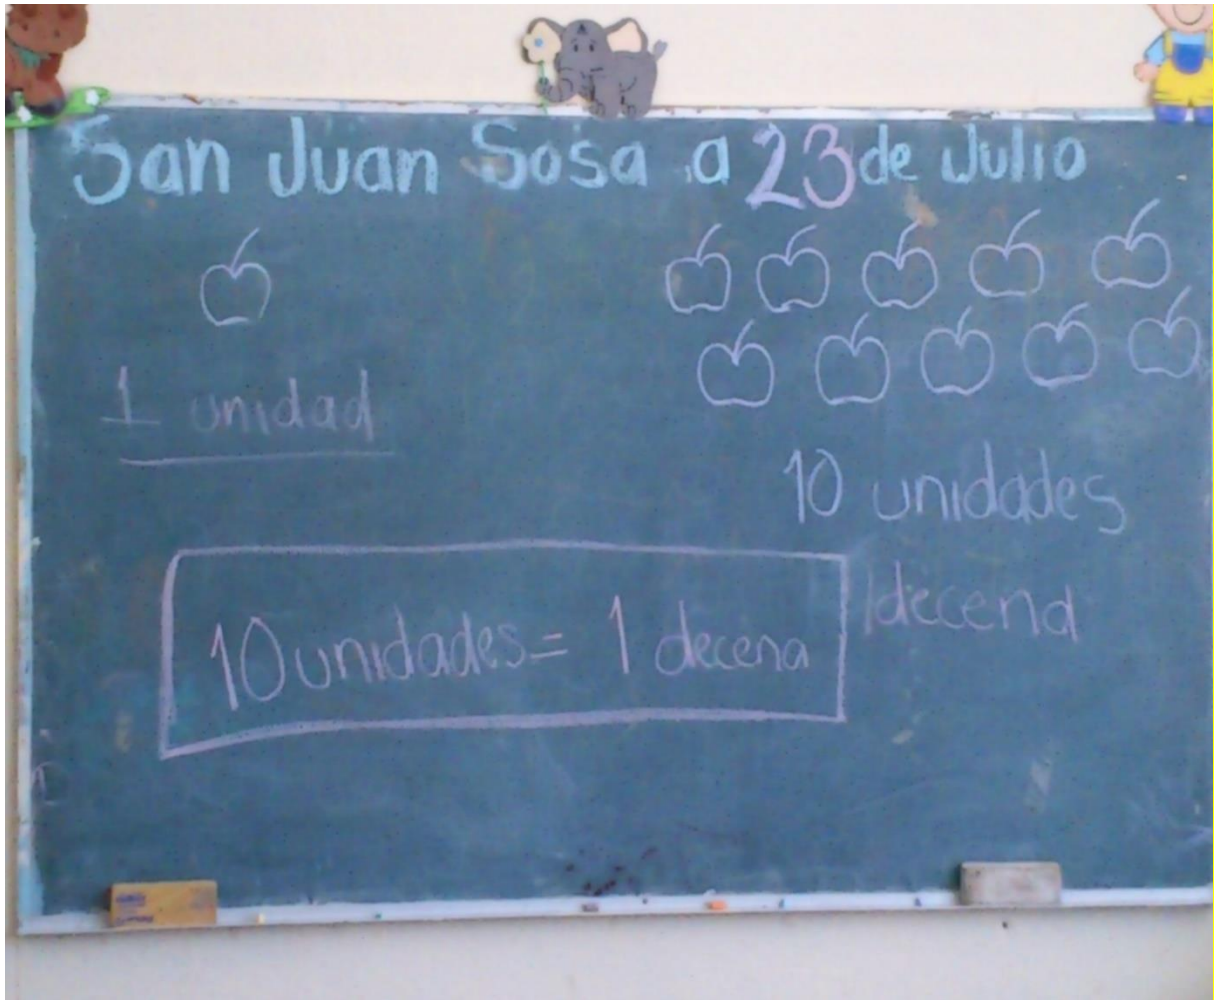 San Juan Sosa a 23 de Julio
1 unidad
10 unidades
1decena
10 unidades = 1 decena